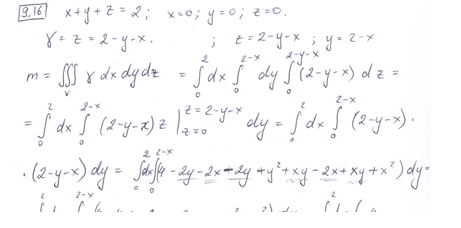 9.16 x+y+z=2; x=0; y=0; z=0.
γ = z = 2-y-x. ; z=2-y-x ; y=2-x
m = ∭_V γ dxdydz = ∫_0^2 dx ∫_0^{2-x} dy ∫_0^{2-y-x} (2-y-x) dz =
= ∫_0^2 dx ∫_0^{2-x} (2-y-x) z |_{z=0}^{z=2-y-x} dy = ∫_0^2 dx ∫_0^{2-x} (2-y-x)·
·(2-y-x) dy = ∫_0^2 dx ∫_0^{2-x} (4-2y-2x-2y+y²+xy-2x+xy+x²) dy=